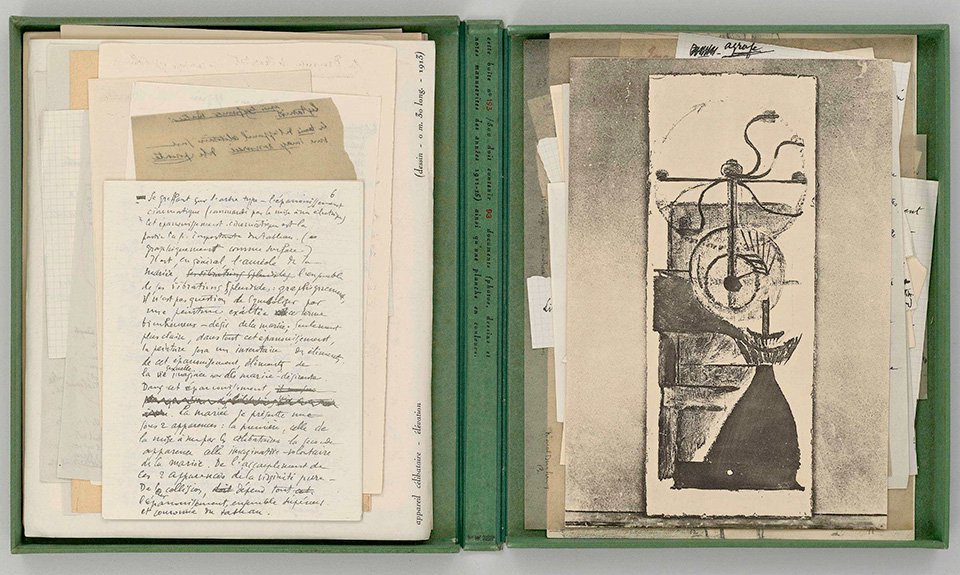 Se greffant sur l'arbre type - l'épanouissement 6
cinématique (commandé par la mise à nu électrique)
Cet épanouissement cinématique est la
partie la p. importante du tableau. (
graphiquement comme surface-)
Il est, en général l'auréole de la
mariée, l'ensemble
de ses vibrations splendides : graphiquement,
il n'est pas question de symboliser par
une peinture exaltée ce terme
bienheureux - désir de la mariée; seulement
plus claire, dans tout cet épanouissement,
la peinture sera un inventaire des éléments
de cet épanouissement, éléments de
la vie sexuelle imaginée par elle mariée-désirante.
Dans cet épanouissement,
La mariée se présente nue
sous 2 apparences : la première, celle de
la mise à nu par les célibataires la seconde
apparence celle imaginative-volontaire
de la mariée. De l'accouplement de
ces 2 apparences de la virginité pure -
De la collision, dépend tout cet
l'épanouissement, ensemble supérieur
et couronne du tableau.
appareil célibataire - élévation
(dessin - 0 m. 30 long. - 1913)
cette boite n° 153 /300 doit contenir 93 documents (photos, dessins et
notes manuscrites des années 1911-15) ainsi qu'une planche en couleurs.
agrafe